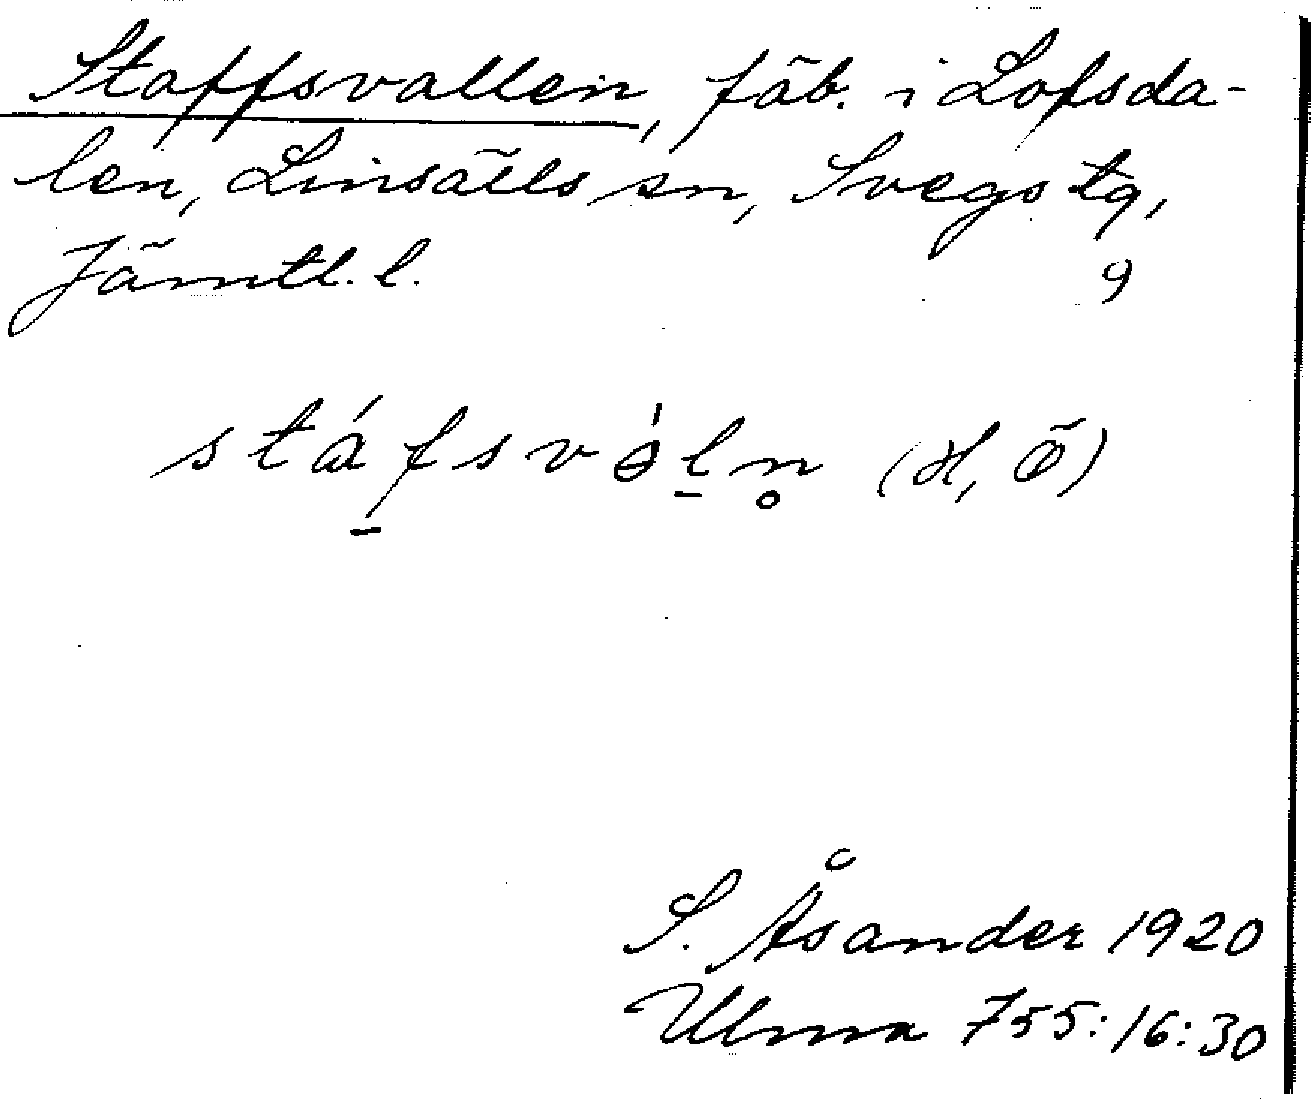 Staffsvallen, fäb. i Lofsda-
len, Linsälls sn, Svegs tg,
Jämtl. l. 9
stáfsvə́l̠n̥ (H, Ö)
S. Åsander 1920
Ulma 755:16:30